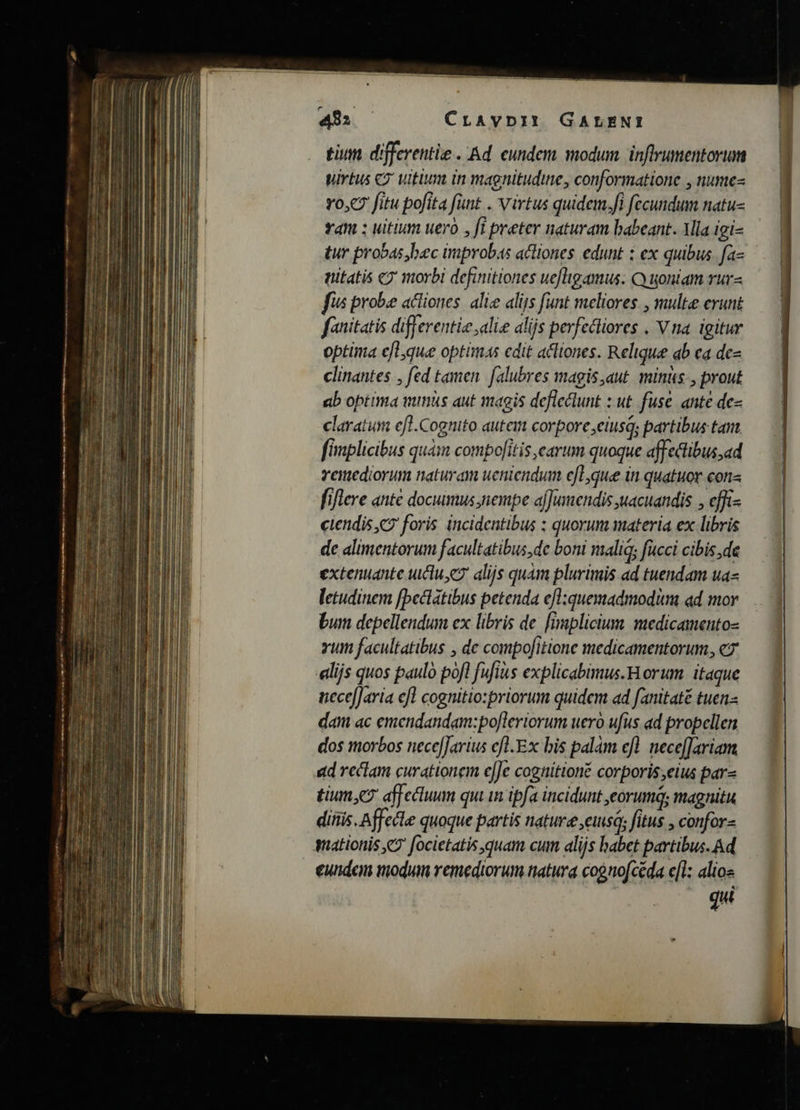 482 CLAVDII GALENI
tium differentiæ. Ad eundem modum instrumentorum
uirtus & uitium in magnitudine, conformatione, nume=
ro,& situ posita sunt. Virtus quidem,si secundum natu=
ram : uitium uerò, si præter naturam habeant. Illa igi=
tur probas,hæc improbas actiones edunt : ex quibus sa=
nitatis & morbi definitiones uestigamus. Quoniam rur=
sus probæ actiones aliæ alijs sunt meliores, multæ erunt
sanitatis differentiæ,aliæ alijs perfectiores. Vna igitur
optima est,quæ optimas edit actiones. Reliquæ ab ea de=
clinantes, sed tamen salubres magis,aut minùs, prout
ab optima minùs aut magis deflectunt : ut fusè antè de=
claratum est.Cognito autem corpore,eiusq; partibus tam
simplicibus quàm compositis,earum quoque affectibus,ad
remediorum naturam ueniendum est,quæ in quatuor con=
sistere antè docuimus,nempe assumendis,uacuandis, effi=
ciendis,& foris incidentibus : quorum materia ex libris
de alimentorum facultatibus,de boni maliq; succi cibis,de
extenuante uictu,& alijs quàm plurimis ad tuendam ua=
letudinem spectātibus petenda est:quemadmodùm ad mor
bum depellendum ex libris de simplicium medicamento=
rum facultatibus, de compositione medicamentorum, &
alijs quos paulò pòst fusiùs explicabimus.Horum itaque
necessaria est cognitio:priorum quidem ad sanitatē tuen=
dam ac emendandam:posteriorum uerò usus ad propellen
dos morbos necessarius est.Ex his palàm est necessariam
ad rectam curationem esse cognitionē corporis,eius par=
tium,& affectuum qui in ipsa incidunt,eorumq; magnitu
dinis.Affectæ quoque partis naturæ,eiusq; situs, confor=
mationis,& societatis,quam cum alijs habet partibus.Ad
eundem modum remediorum natura cognoscēda est: alio=
qui